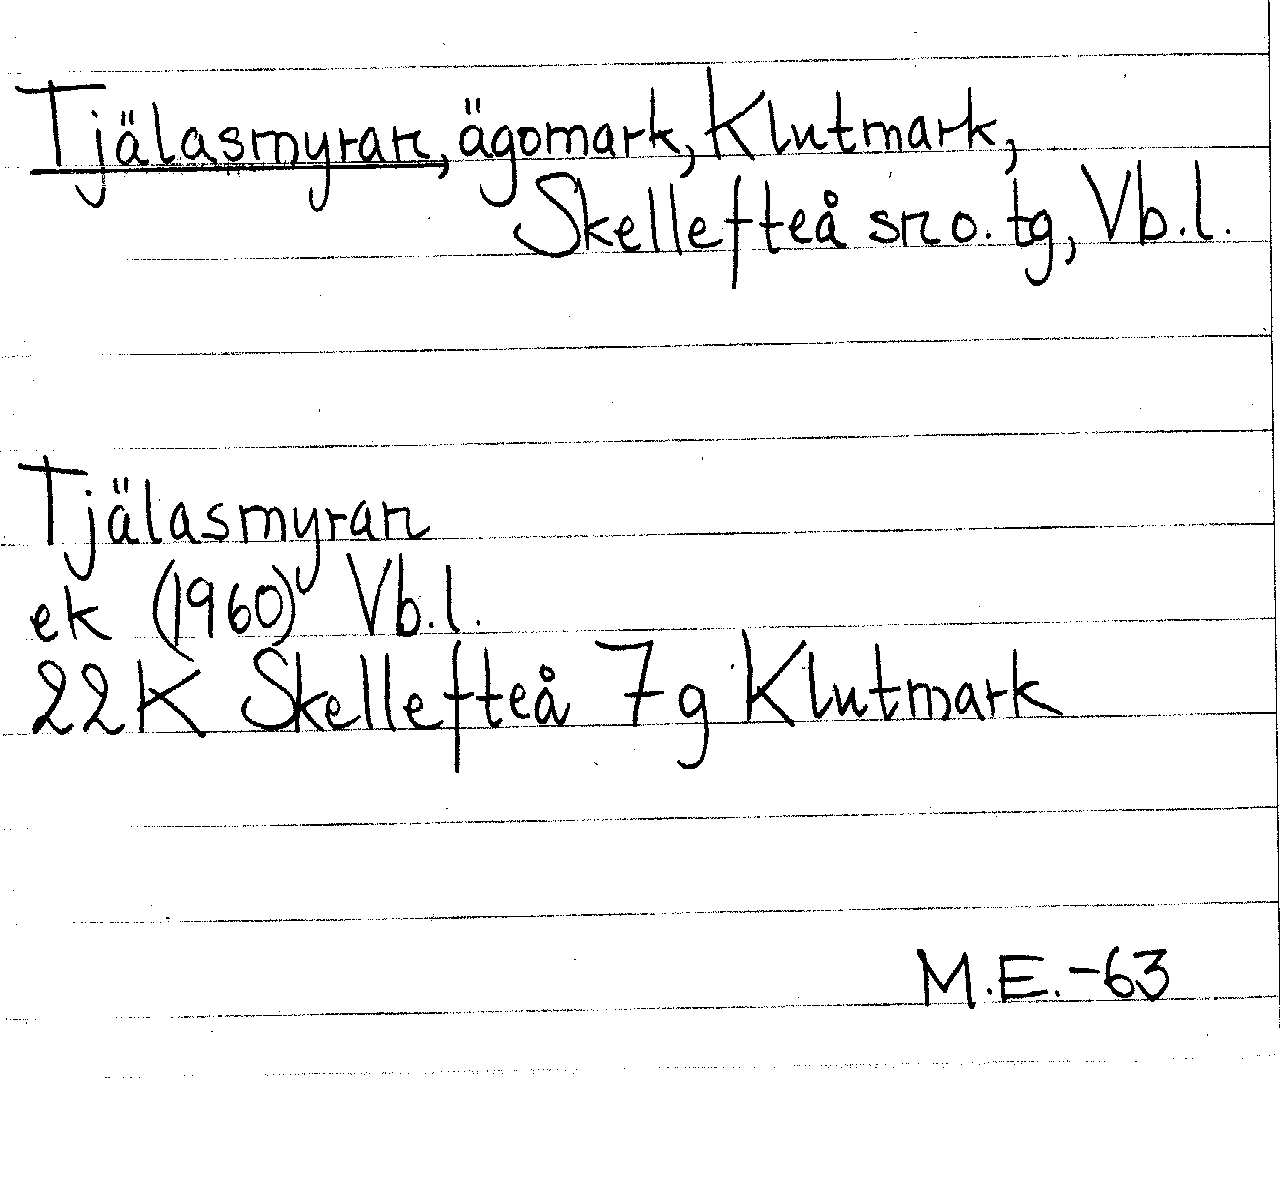 Tjälasmyran, ägomark, Klutmark,
Skellefteå sn o. tg, Vb.l.
Tjälasmyran
ek (1960) Vb.l.
22K Skellefteå 7g Klutmark
M.E.-63